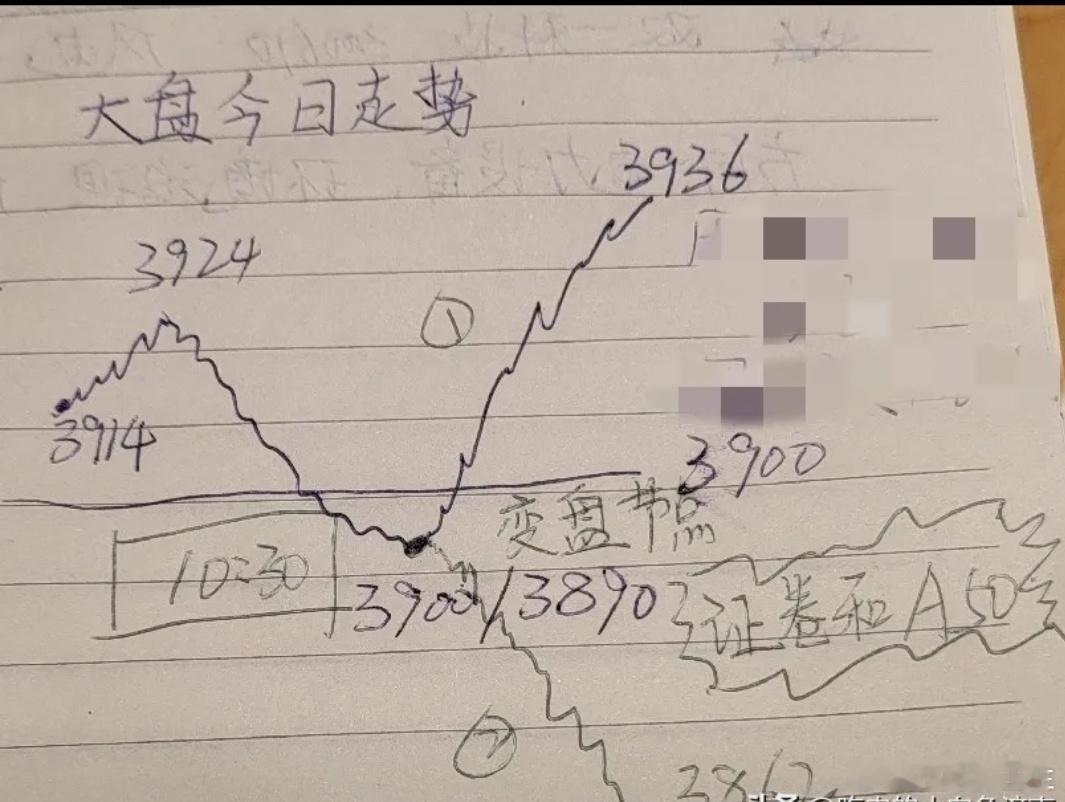 大盘今日走势
3936
3924
①
3914
3900
变盘节点
10:30
3900/3890
证卷和A50
②